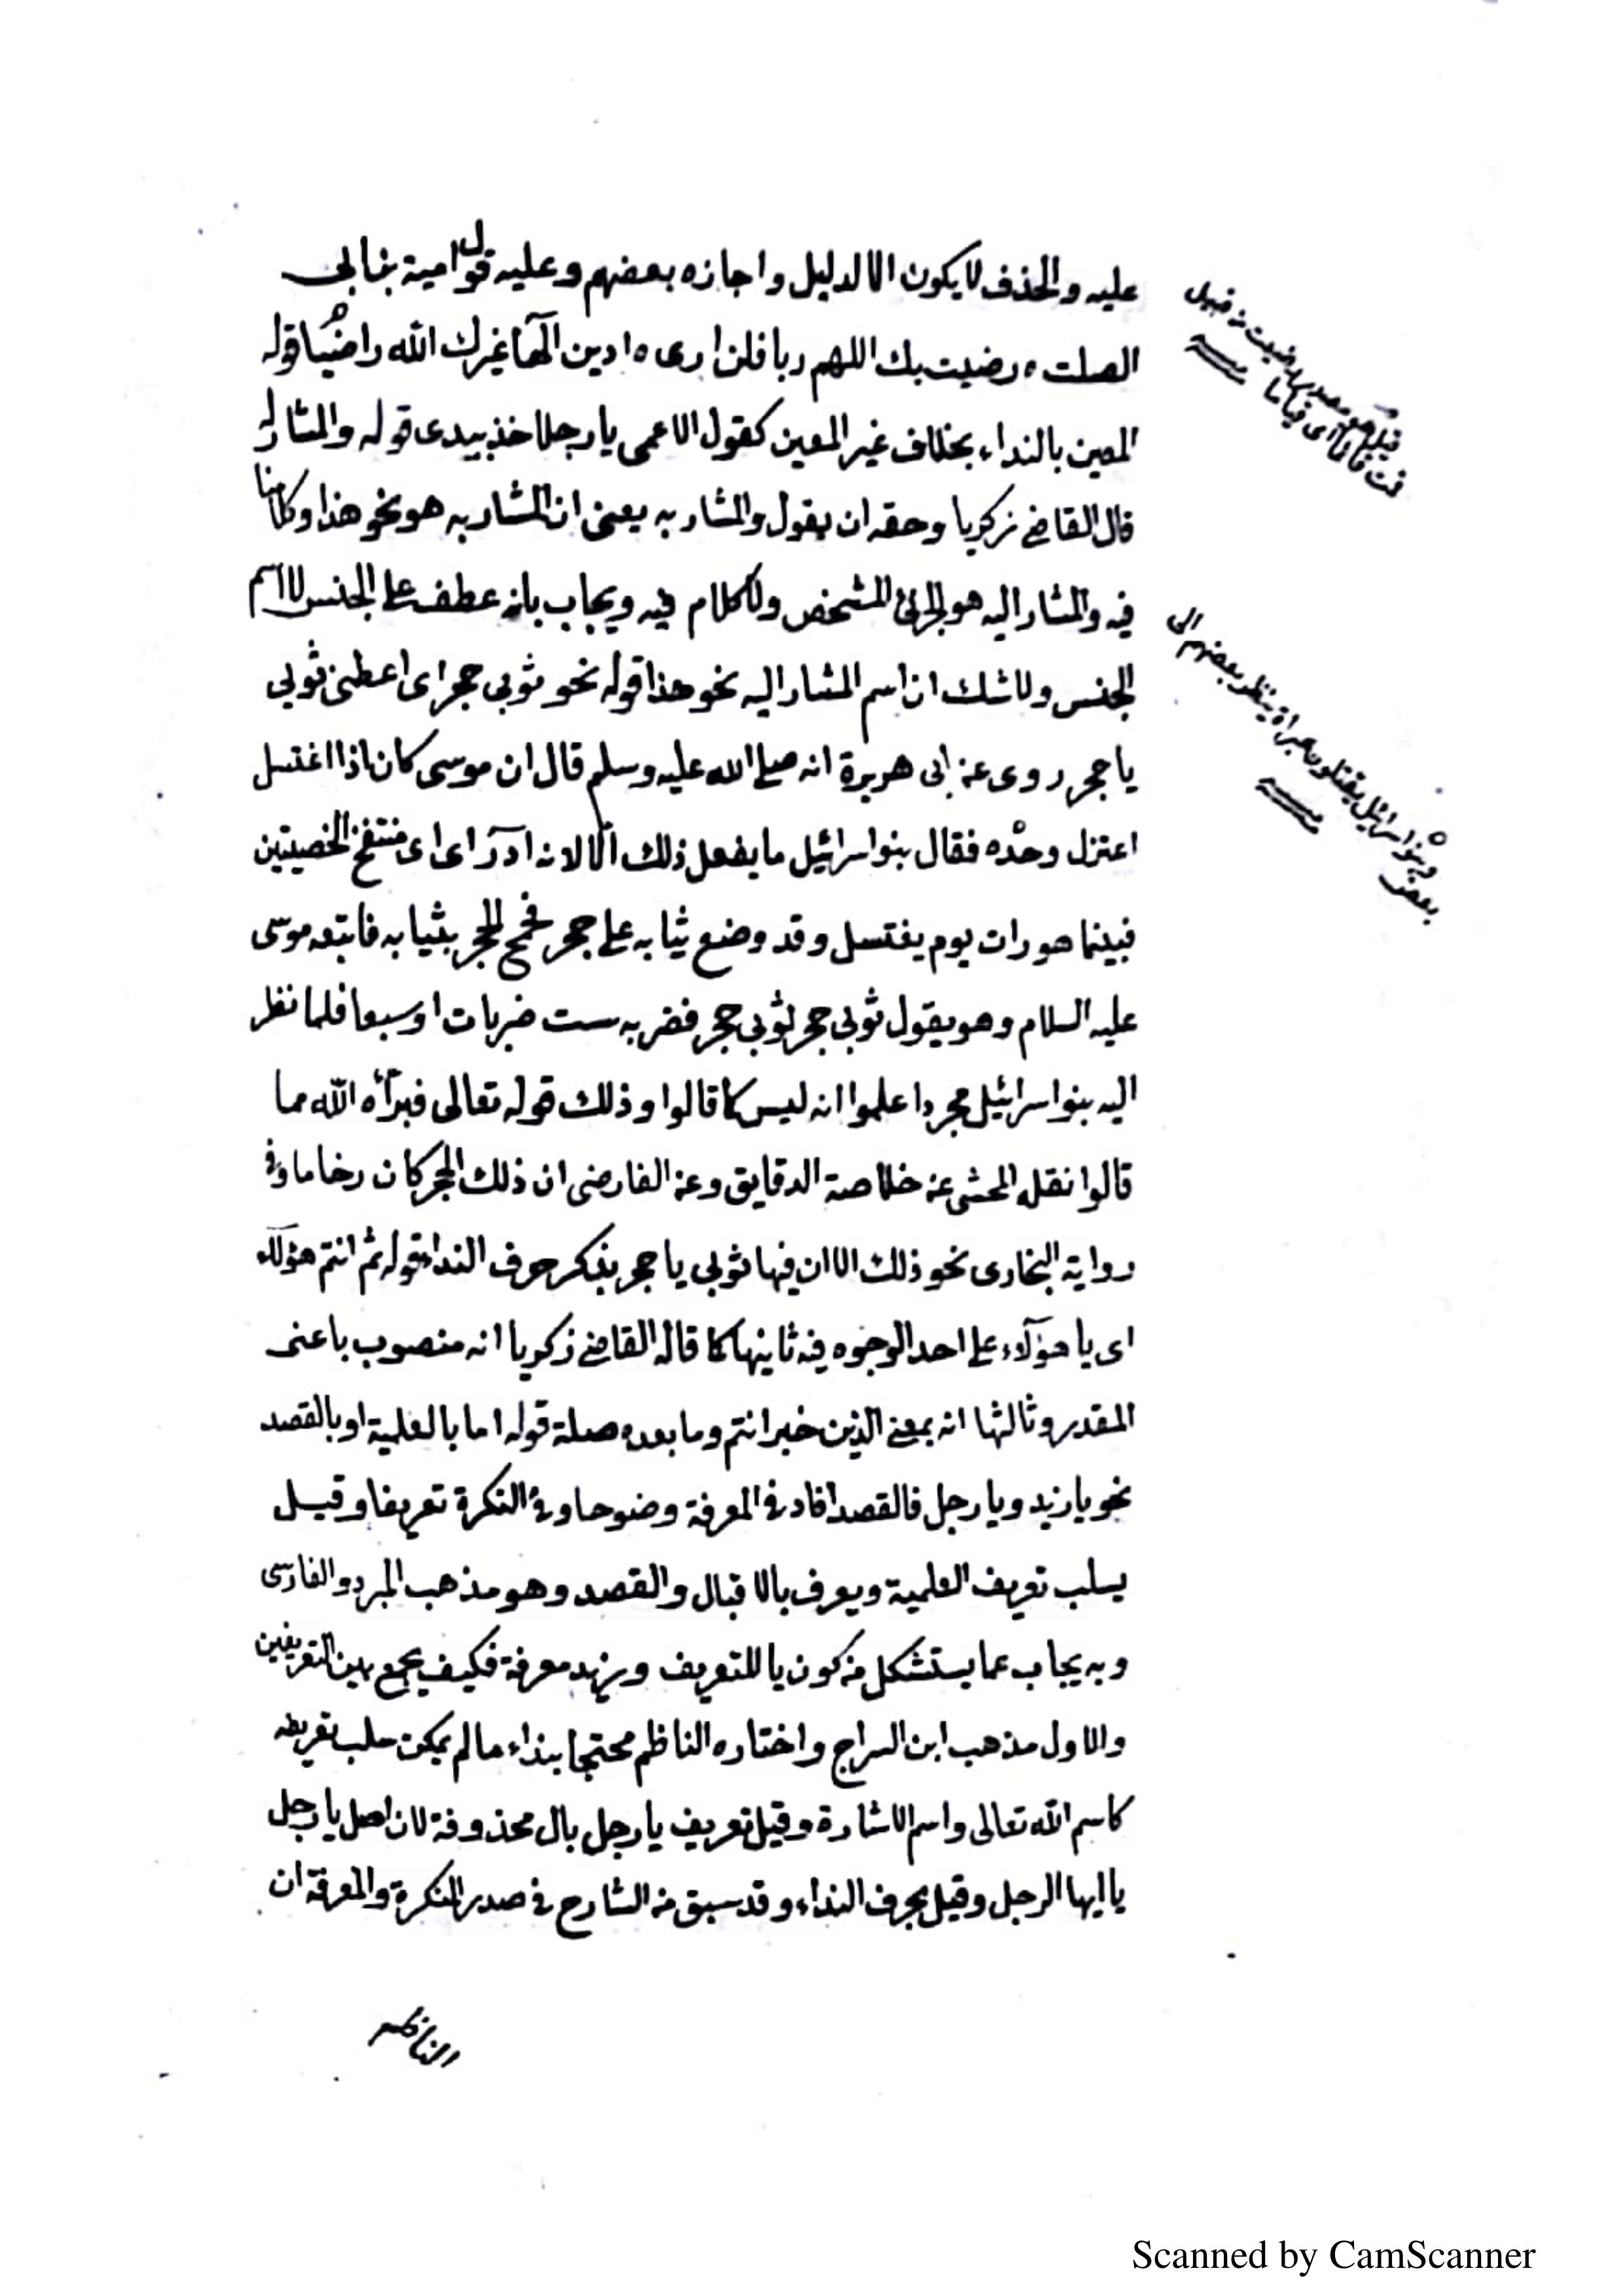 عليه والحذف لا يكون الا لدليل واجازه بعضهم وعليه قول امية بن ابي
الصلت ه رضيت بك اللهم ربا فلن ارى ه ادين الٓها غيرك الله راضيا قوله
المعين بالنداء بخلاف غير المعين كقول الاعمى يا رجلا خذ بيدى قوله والمشار له
قال القاضى زكريا وحقه ان يقول والمشار به يعنى ان المشار به هو نحو هذا وكلامنا
فيه والمشار اليه هو الجزئى المشخص ولا كلام فيه ويجاب بانه عطف على الجنس لا اسم
الجنس ولا شك ان اسم المشار اليه نحو هذا قوله نحو ثوبى حجر اى اعطنى ثوبى
يا حجر روى عن ابى هريرة انه صلى الله عليه وسلم قال ان موسى كان اذا اغتسل
اعتزل وحده فقال بنوا سرائيل ما يفعل ذلك الا لانه ادٓر اى منتفخ الخصيتين
فبينما هو رات يوم يغتسل وقد وضع ثيابه على حجر فجمح الحجر بثيابه فاتبعه موسى
عليه السلام وهو يقول ثوبى حجر ثوبى حجر فضربه ست ضربات او سبعا فلما نظر
اليه بنوا سرائيل مجردا علموا انه ليس كما قالوا وذلك قوله تعالى فبرأه الله مما
قالوا نقله المحشى عن خلاصة الدقايق وعن الفارضى ان ذلك الحجر كان رخاما وفى
رواية البخارى نحو ذلك الا ان فيها ثوبى يا حجر بذكر حرف النداء قوله ثم انتم هؤلاء
اى يا هؤلاء على احد الوجوه فيه ثانيها كما قاله القاضى زكريا انه منصوب باعنى
المقدر وثالثها انه بمعنى الذين خبر انتم وما بعده صلة قوله اما بالعلمية او بالقصد
نحو يا زيد ويا رجل فالقصد افاد فى المعرفة وضوحا وفى النكرة تعريفا وقيل
يسلب تعريف العلمية ويعرف بالاقبال والقصد وهو مذهب المبرد والفارسى
وبه يجاب عما يستشكل من كون يا للتعريف وزيد معرفة فكيف يجمع بين التعريفين
والاول مذهب ابن السراج واختاره الناظم محتجا بنداء ما لم يمكن سلب تعريفه
كاسم الله تعالى واسم الاشارة وقيل تعريف يا رجل بال محذوفة لان اصل يا رجل
يا ايها الرجل وقيل بحرف النداء وقد سبق من الشارح فى صدر النكرة والمعرفة ان
الناظم
قيل هو مصدر رضيت من قبيل
قمت قائما اى قياما
وبنوا سرائيل يغتسلون عراة ينظر بعضهم الى
بعض
Scanned by CamScanner